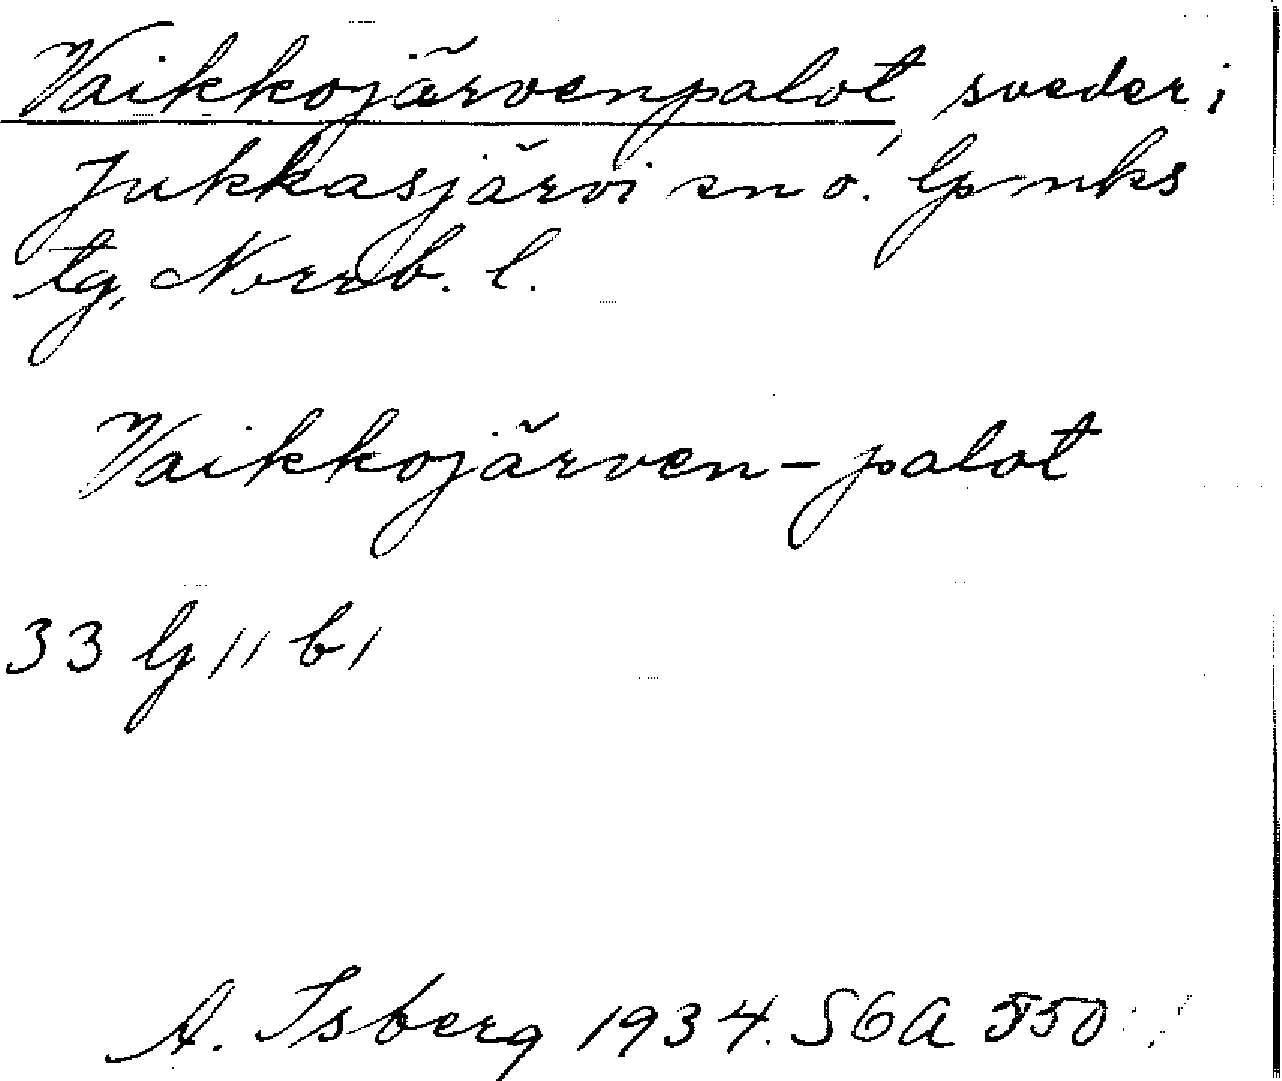 Vaikkojärvenpalot, sveder i
Jukkasjärvi sn o. lpmks
tg, Norrb. l.
Vaikkojärven-palot
33 lg 11 b 1
A. Isberg 1934. SGA 550